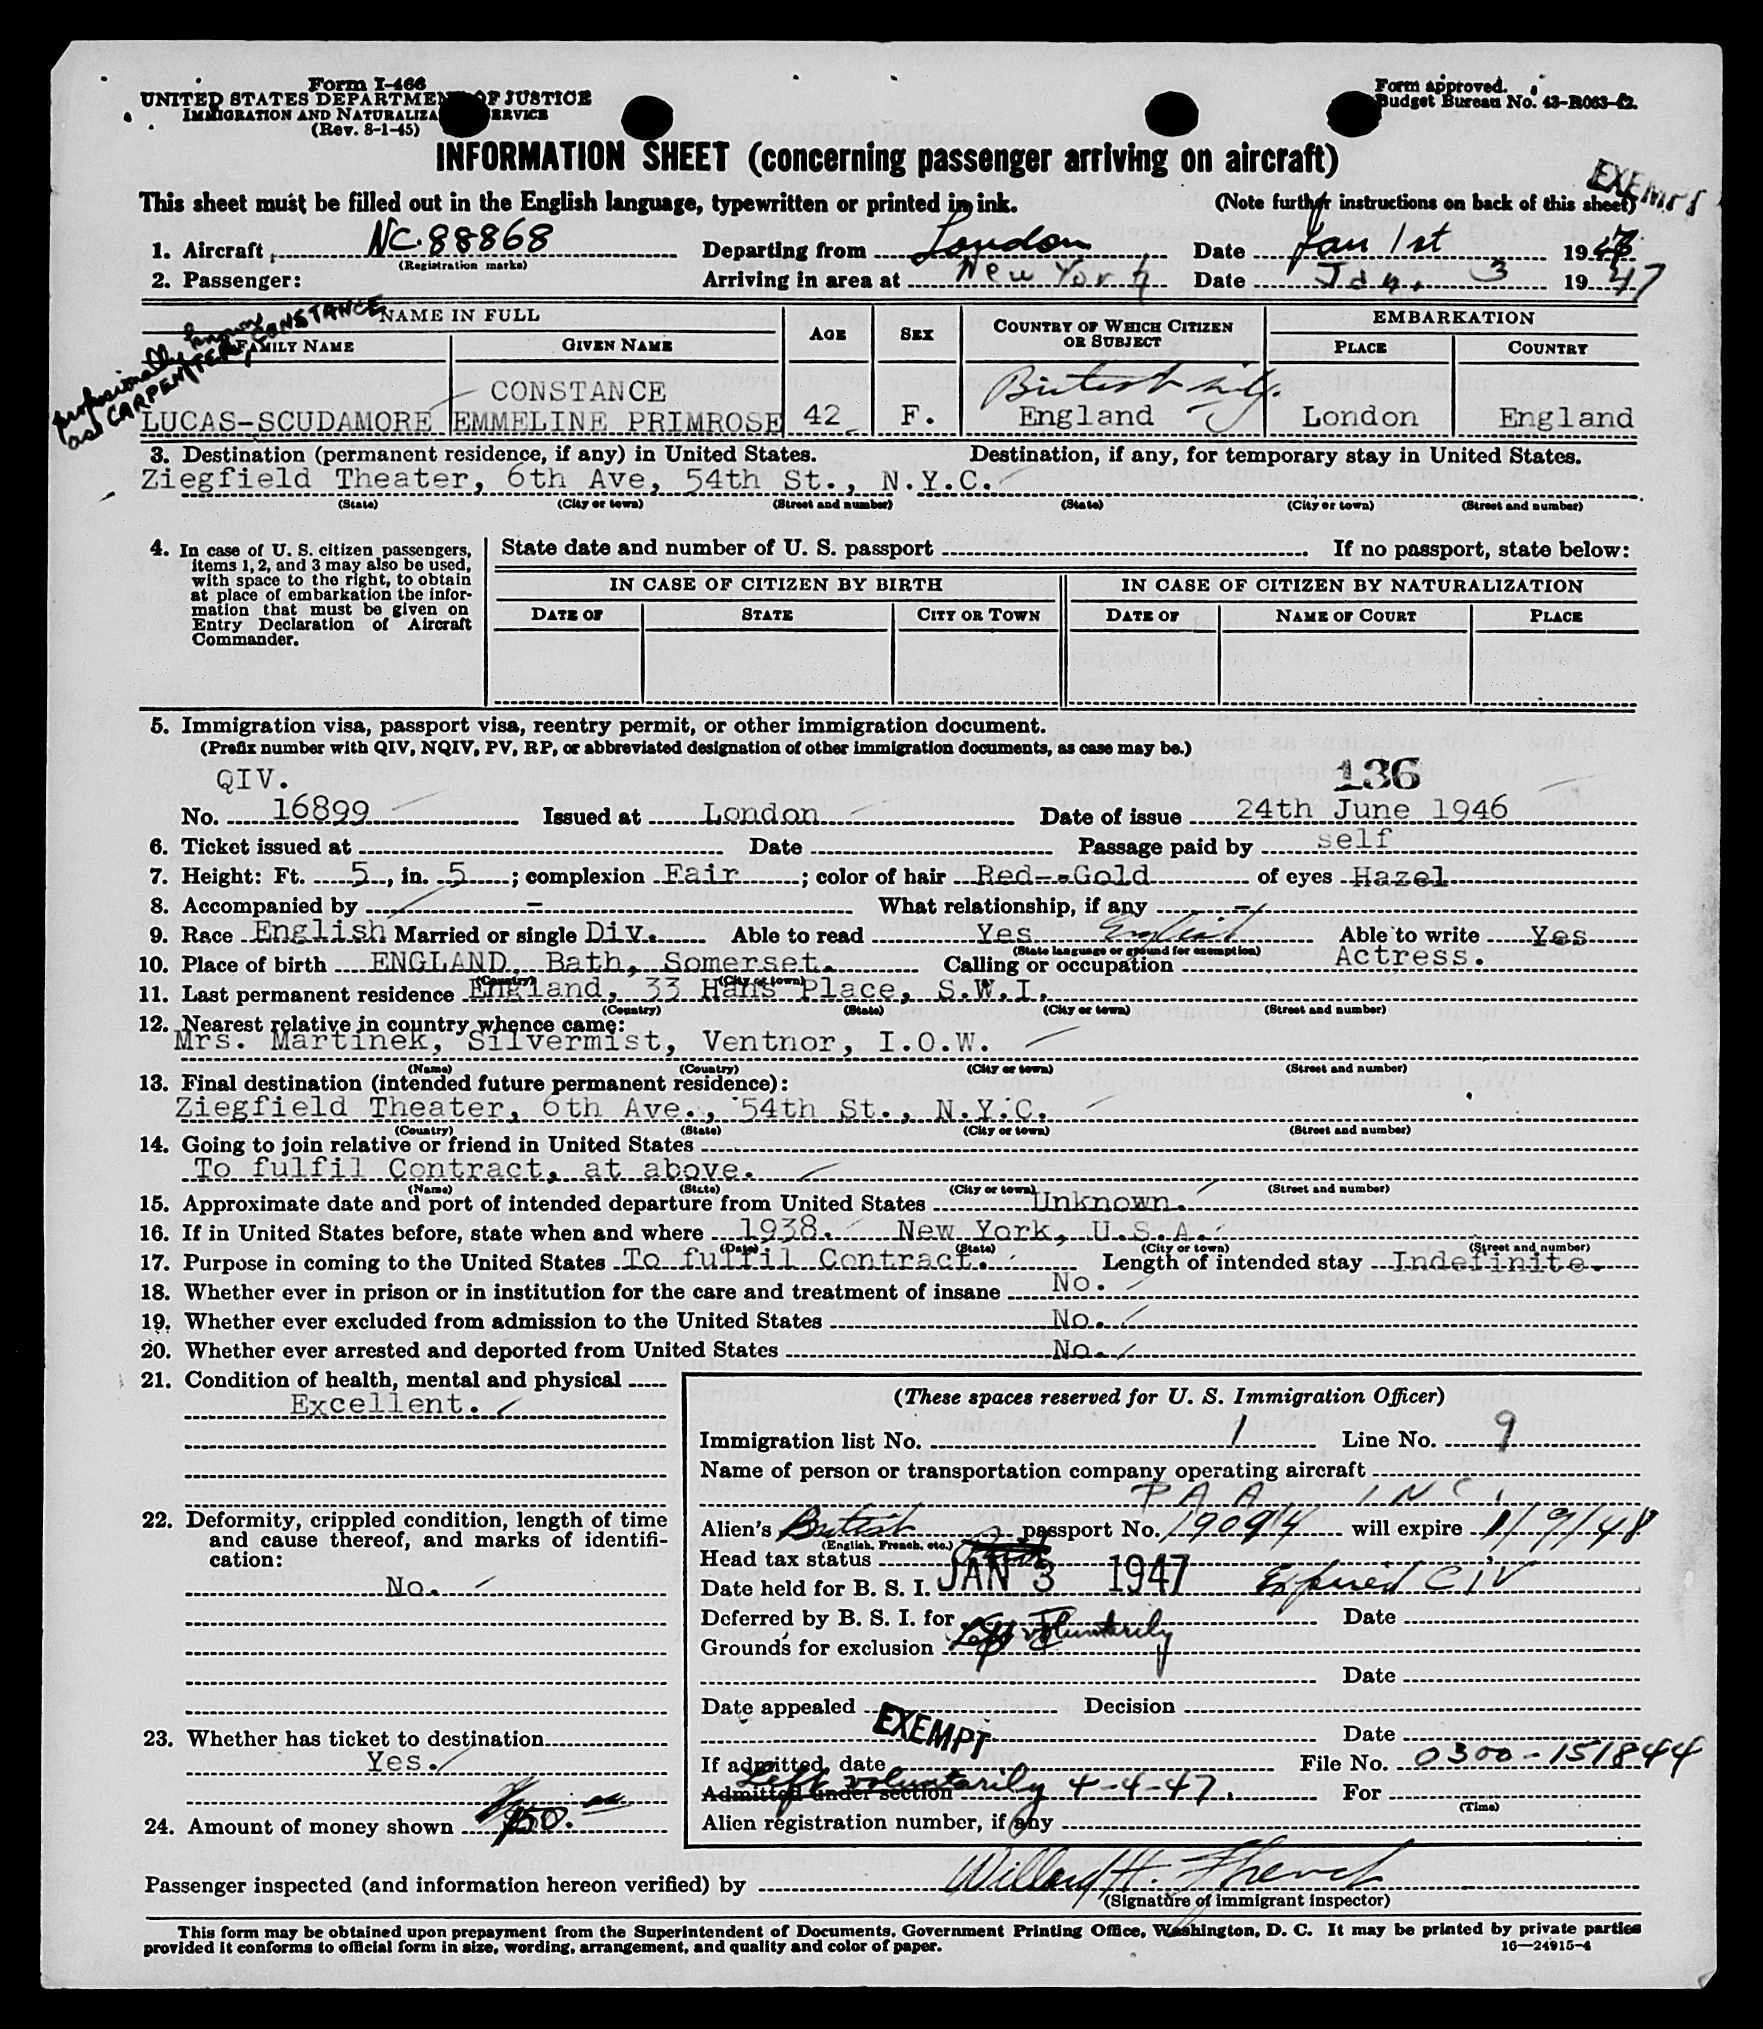 Form I-466
UNITED STATES DEPARTMENT OF JUSTICE
IMMIGRATION AND NATURALIZATION SERVICE
(Rev. 8-1-45)
Form approved.
Budget Bureau No. 43-R063-42.
INFORMATION SHEET (concerning passenger arriving on aircraft)
EXEMPT
This sheet must be filled out in the English language, typewritten or printed in ink. (Note further instructions on back of this sheet)
1. Aircraft NC. 88868 Departing from London Date Jan 1st 1947
(Registration marks)
2. Passenger: Arriving in area at New York Date Jan. 3 1947
professionally known
as CARPENTER, CONSTANCE
NAME IN FULL AGE SEX COUNTRY OF WHICH CITIZEN OR SUBJECT EMBARKATION
FAMILY NAME GIVEN NAME PLACE COUNTRY
CONSTANCE British
LUCAS-SCUDAMORE EMMELINE PRIMROSE 42 F. England London England
3. Destination (permanent residence, if any) in United States. Destination, if any, for temporary stay in United States.
Ziegfield Theater, 6th Ave, 54th St., N.Y.C.
(State) (City or town) (Street and number) (State) (City or town) (Street and number)
4. In case of U. S. citizen passengers,
items 1, 2, and 3 may also be used,
with space to the right, to obtain
at place of embarkation the infor-
mation that must be given on
Entry Declaration of Aircraft
Commander.
State date and number of U. S. passport If no passport, state below:
IN CASE OF CITIZEN BY BIRTH IN CASE OF CITIZEN BY NATURALIZATION
DATE OF STATE CITY OR TOWN DATE OF NAME OF COURT PLACE
5. Immigration visa, passport visa, reentry permit, or other immigration document.
(Prefix number with QIV, NQIV, PV, RP, or abbreviated designation of other immigration documents, as case may be.)
QIV. 136
No. 16899 Issued at London Date of issue 24th June 1946
6. Ticket issued at Date Passage paid by self
7. Height: Ft. 5, in. 5; complexion Fair; color of hair Red--Gold of eyes Hazel
8. Accompanied by - What relationship, if any -
9. Race English Married or single Div. Able to read Yes English Able to write Yes
(State language or ground for exemption)
10. Place of birth ENGLAND, Bath, Somerset. Calling or occupation Actress.
(Country) (City or town)
11. Last permanent residence England, 33 Hans Place, S.W.I.
(Country) (State) (City or town) (Street and number)
12. Nearest relative in country whence came:
Mrs. Martinek, Silvermist, Ventnor, I.O.W.
(Name) (Country) (City or town) (Street and number)
13. Final destination (intended future permanent residence):
Ziegfield Theater, 6th Ave., 54th St., N.Y.C.
(Country) (State) (City or town) (Street and number)
14. Going to join relative or friend in United States
To fulfil Contract, at above.
(Name) (State) (City or town) (Street and number)
15. Approximate date and port of intended departure from United States Unknown.
16. If in United States before, state when and where 1938. New York, U.S.A.
(Date) (State) (City or town) (Street and number)
17. Purpose in coming to the United States To fulfil Contract. Length of intended stay Indefinite.
18. Whether ever in prison or in institution for the care and treatment of insane No.
19. Whether ever excluded from admission to the United States No.
20. Whether ever arrested and deported from United States No.
21. Condition of health, mental and physical
Excellent.
22. Deformity, crippled condition, length of time
and cause thereof, and marks of identifi-
cation:
No.
23. Whether has ticket to destination
Yes.
24. Amount of money shown $50.
(These spaces reserved for U. S. Immigration Officer)
Immigration list No. 1 Line No. 9
Name of person or transportation company operating aircraft
P A A INC.
Alien's British passport No. 19094 will expire 1/9/48
(English, French, etc.)
Head tax status
Date held for B. S. I. JAN 3 1947 Expired CIV
Deferred by B. S. I. for Date
Grounds for exclusion Left voluntarily
Date
Date appealed Decision
EXEMPT Date
If admitted, date File No. 0300-151844
Admitted under section Left voluntarily 4-4-47. For
(Time)
Alien registration number, if any
Passenger inspected (and information hereon verified) by Willard H. French
(Signature of immigrant inspector)
This form may be obtained upon prepayment from the Superintendent of Documents, Government Printing Office, Washington, D. C. It may be printed by private parties
provided it conforms to official form in size, wording, arrangement, and quality and color of paper.
16—24915-4